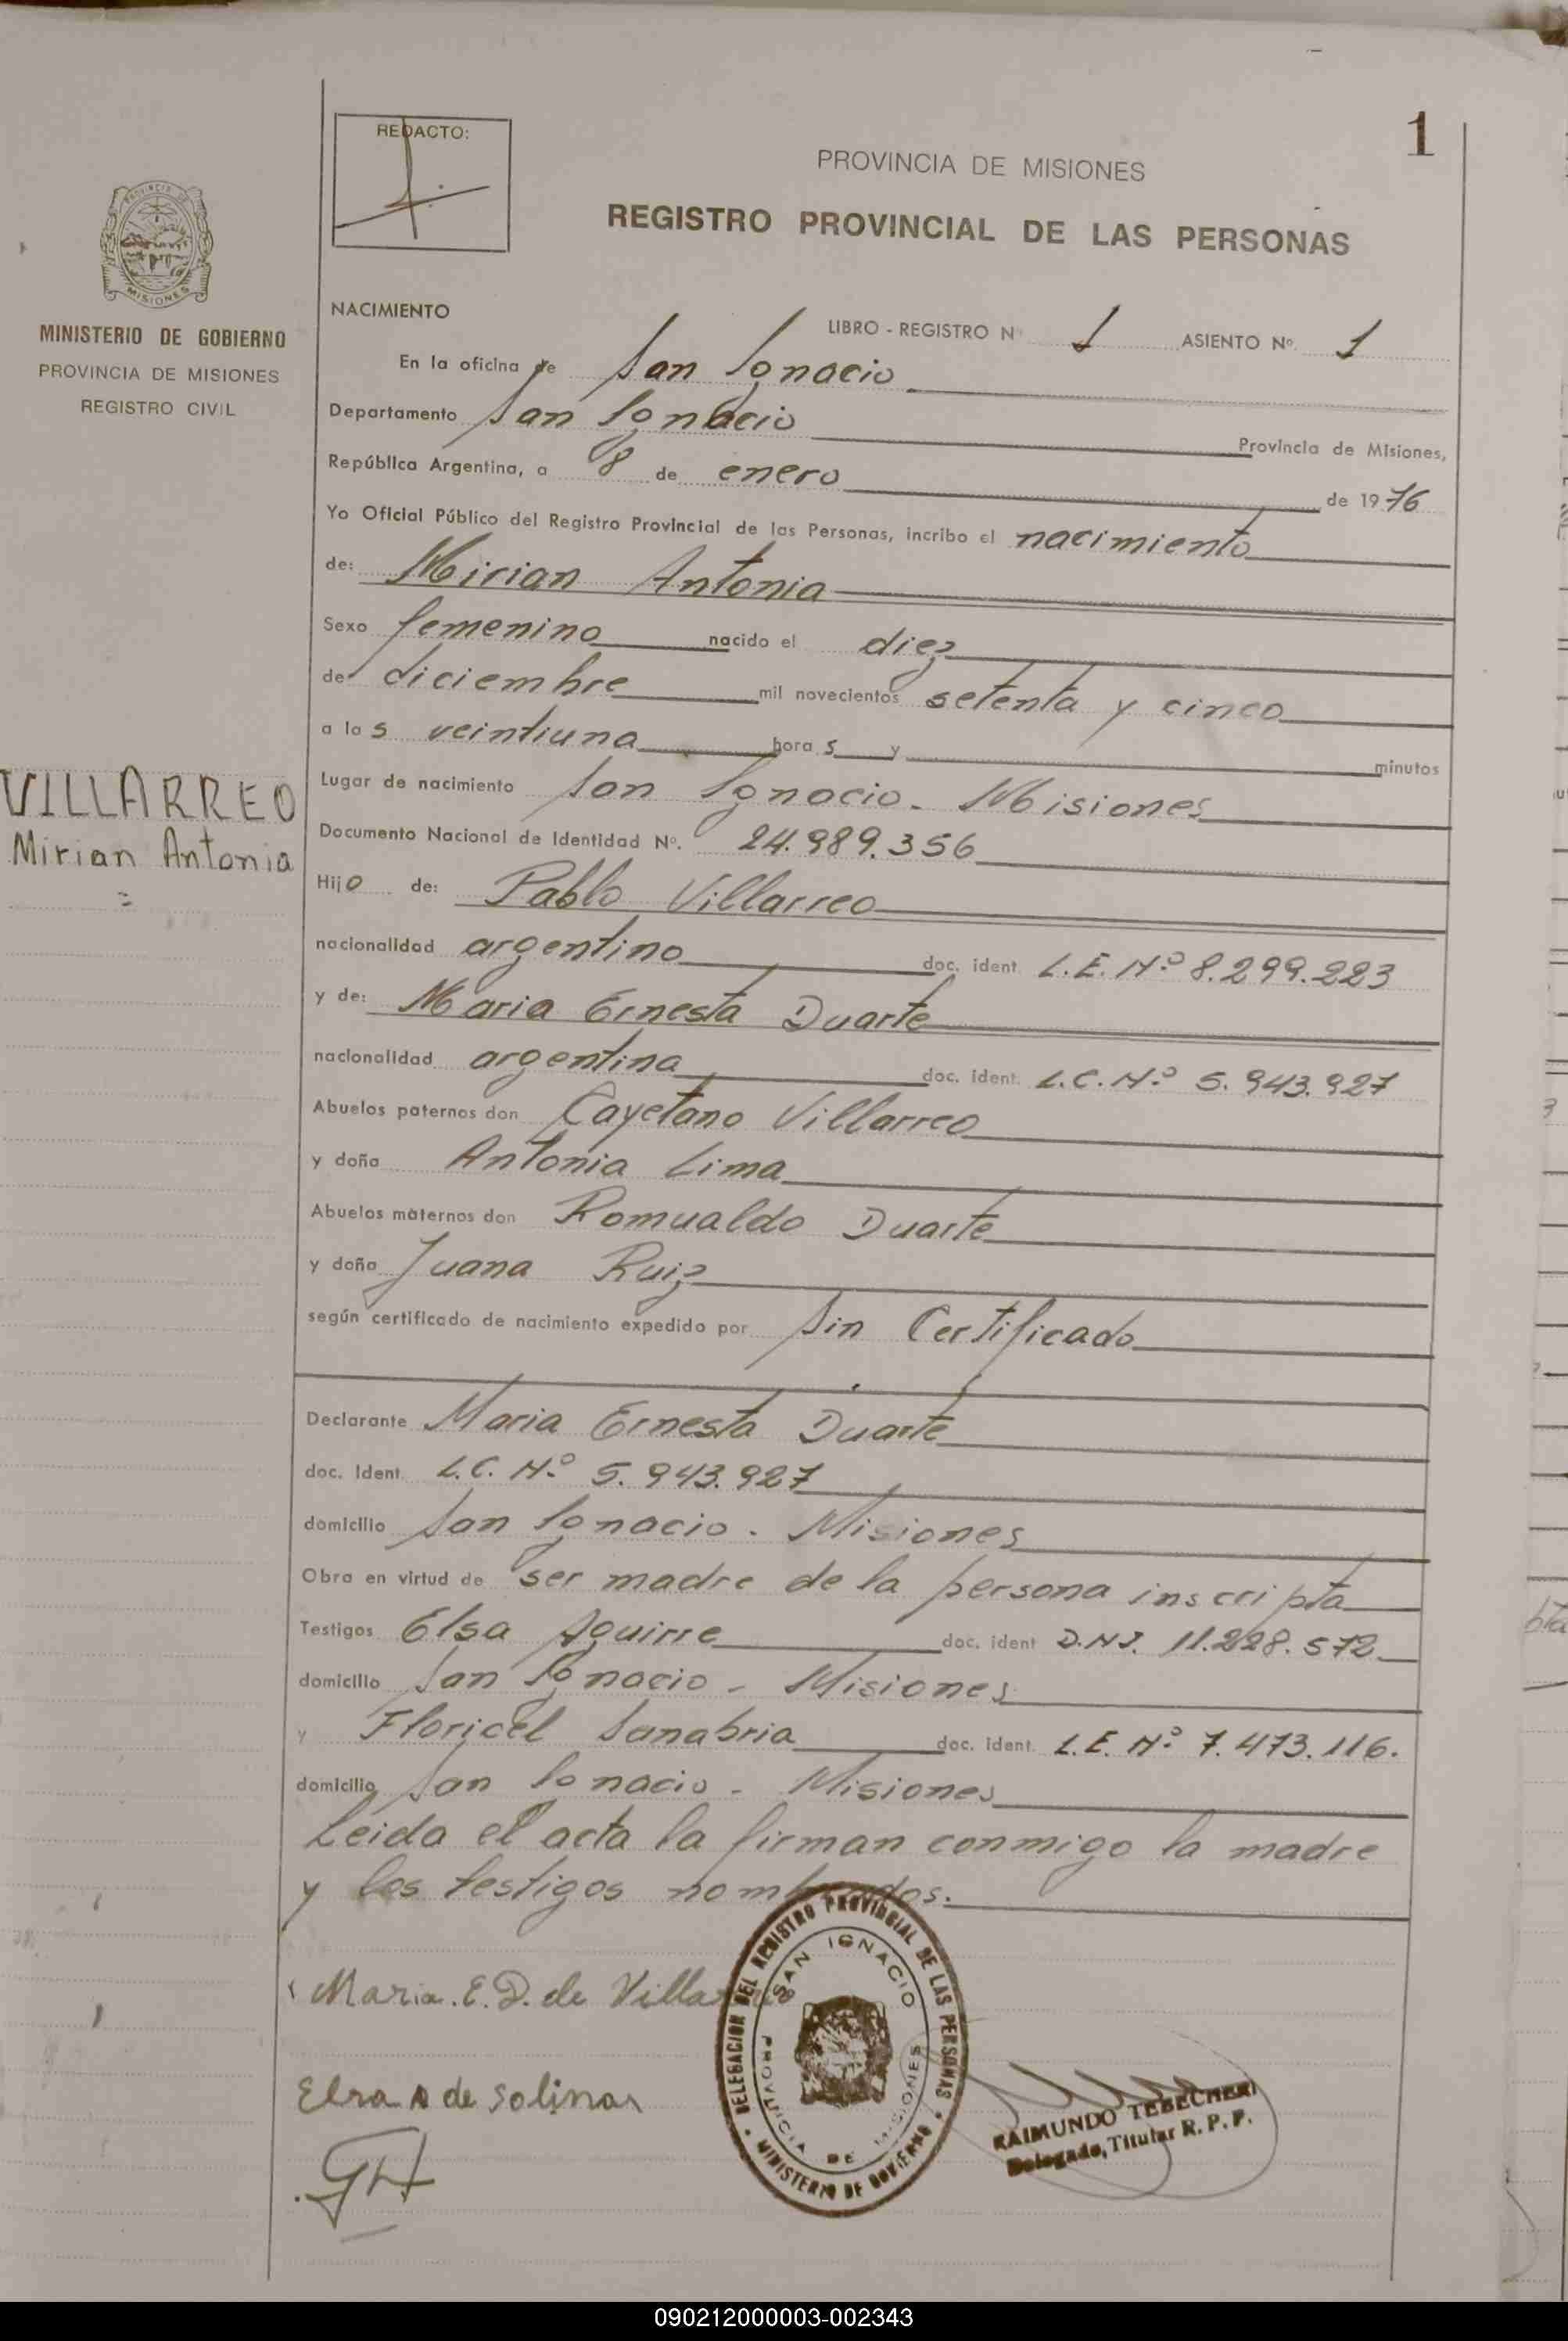 1
REDACTO:
PROVINCIA DE MISIONES
REGISTRO PROVINCIAL DE LAS PERSONAS
PROVINCIA DE
MISIONES
MINISTERIO DE GOBIERNO
PROVINCIA DE MISIONES
REGISTRO CIVIL
VILLARREO
Mirian Antonia
NACIMIENTO
LIBRO - REGISTRO Nº 1 ASIENTO Nº 1
En la oficina de San Ignacio
Departamento San Ignacio Provincia de Misiones,
República Argentina, a 8 de enero de 1976
Yo Oficial Público del Registro Provincial de las Personas, incribo el nacimiento
de: Mirian Antonia
Sexo femenino nacido el diez
de diciembre mil novecientos setenta y cinco
a las veintiuna horas y minutos
Lugar de nacimiento San Ignacio - Misiones
Documento Nacional de Identidad Nº. 24.989.356
Hijo de: Pablo Villarreo
nacionalidad argentino doc. ident. L.E. Nº 8.299.223
y de: Maria Ernesta Duarte
nacionalidad argentina doc. ident. L.C. Nº 5.943.927
Abuelos paternos don Cayetano Villarreo
y doña Antonia Lima
Abuelos maternos don Romualdo Duarte
y doña Juana Ruiz
según certificado de nacimiento expedido por Sin Certificado
Declarante Maria Ernesta Duarte
doc. Ident. L.C. Nº 5.943.927
domicilio San Ignacio - Misiones
Obra en virtud de ser madre de la persona inscripta
Testigos Elsa Aguirre doc. ident D.N.I. 11.228.572
domicilio San Ignacio - Misiones
y Floricel Sanabria doc. ident. L.E. Nº 7.473.116.
domicilio San Ignacio - Misiones
Leida el acta la firman conmigo la madre
y los testigos nombrados.
Maria. E. D. de Villarreo
Elsa A de Solinas
DELEGACION DEL REGISTRO PROVINCIAL DE LAS PERSONAS
MINISTERIO DE GOBIERNO
SAN IGNACIO
PROVINCIA DE MISIONES
RAIMUNDO TEBECHERI
Delegado, Titular R. P. P.
090212000003-002343